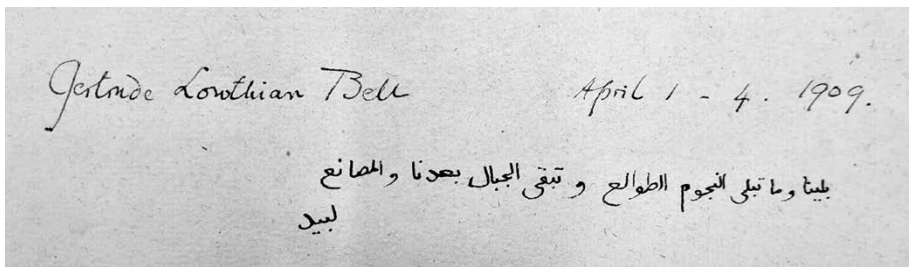 Gertrude Lowthian Bell April 1 - 4. 1909.
بلينا وما تبلى النجوم الطوالع و تبقى الجبال بعدنا والمصانع
لبيد